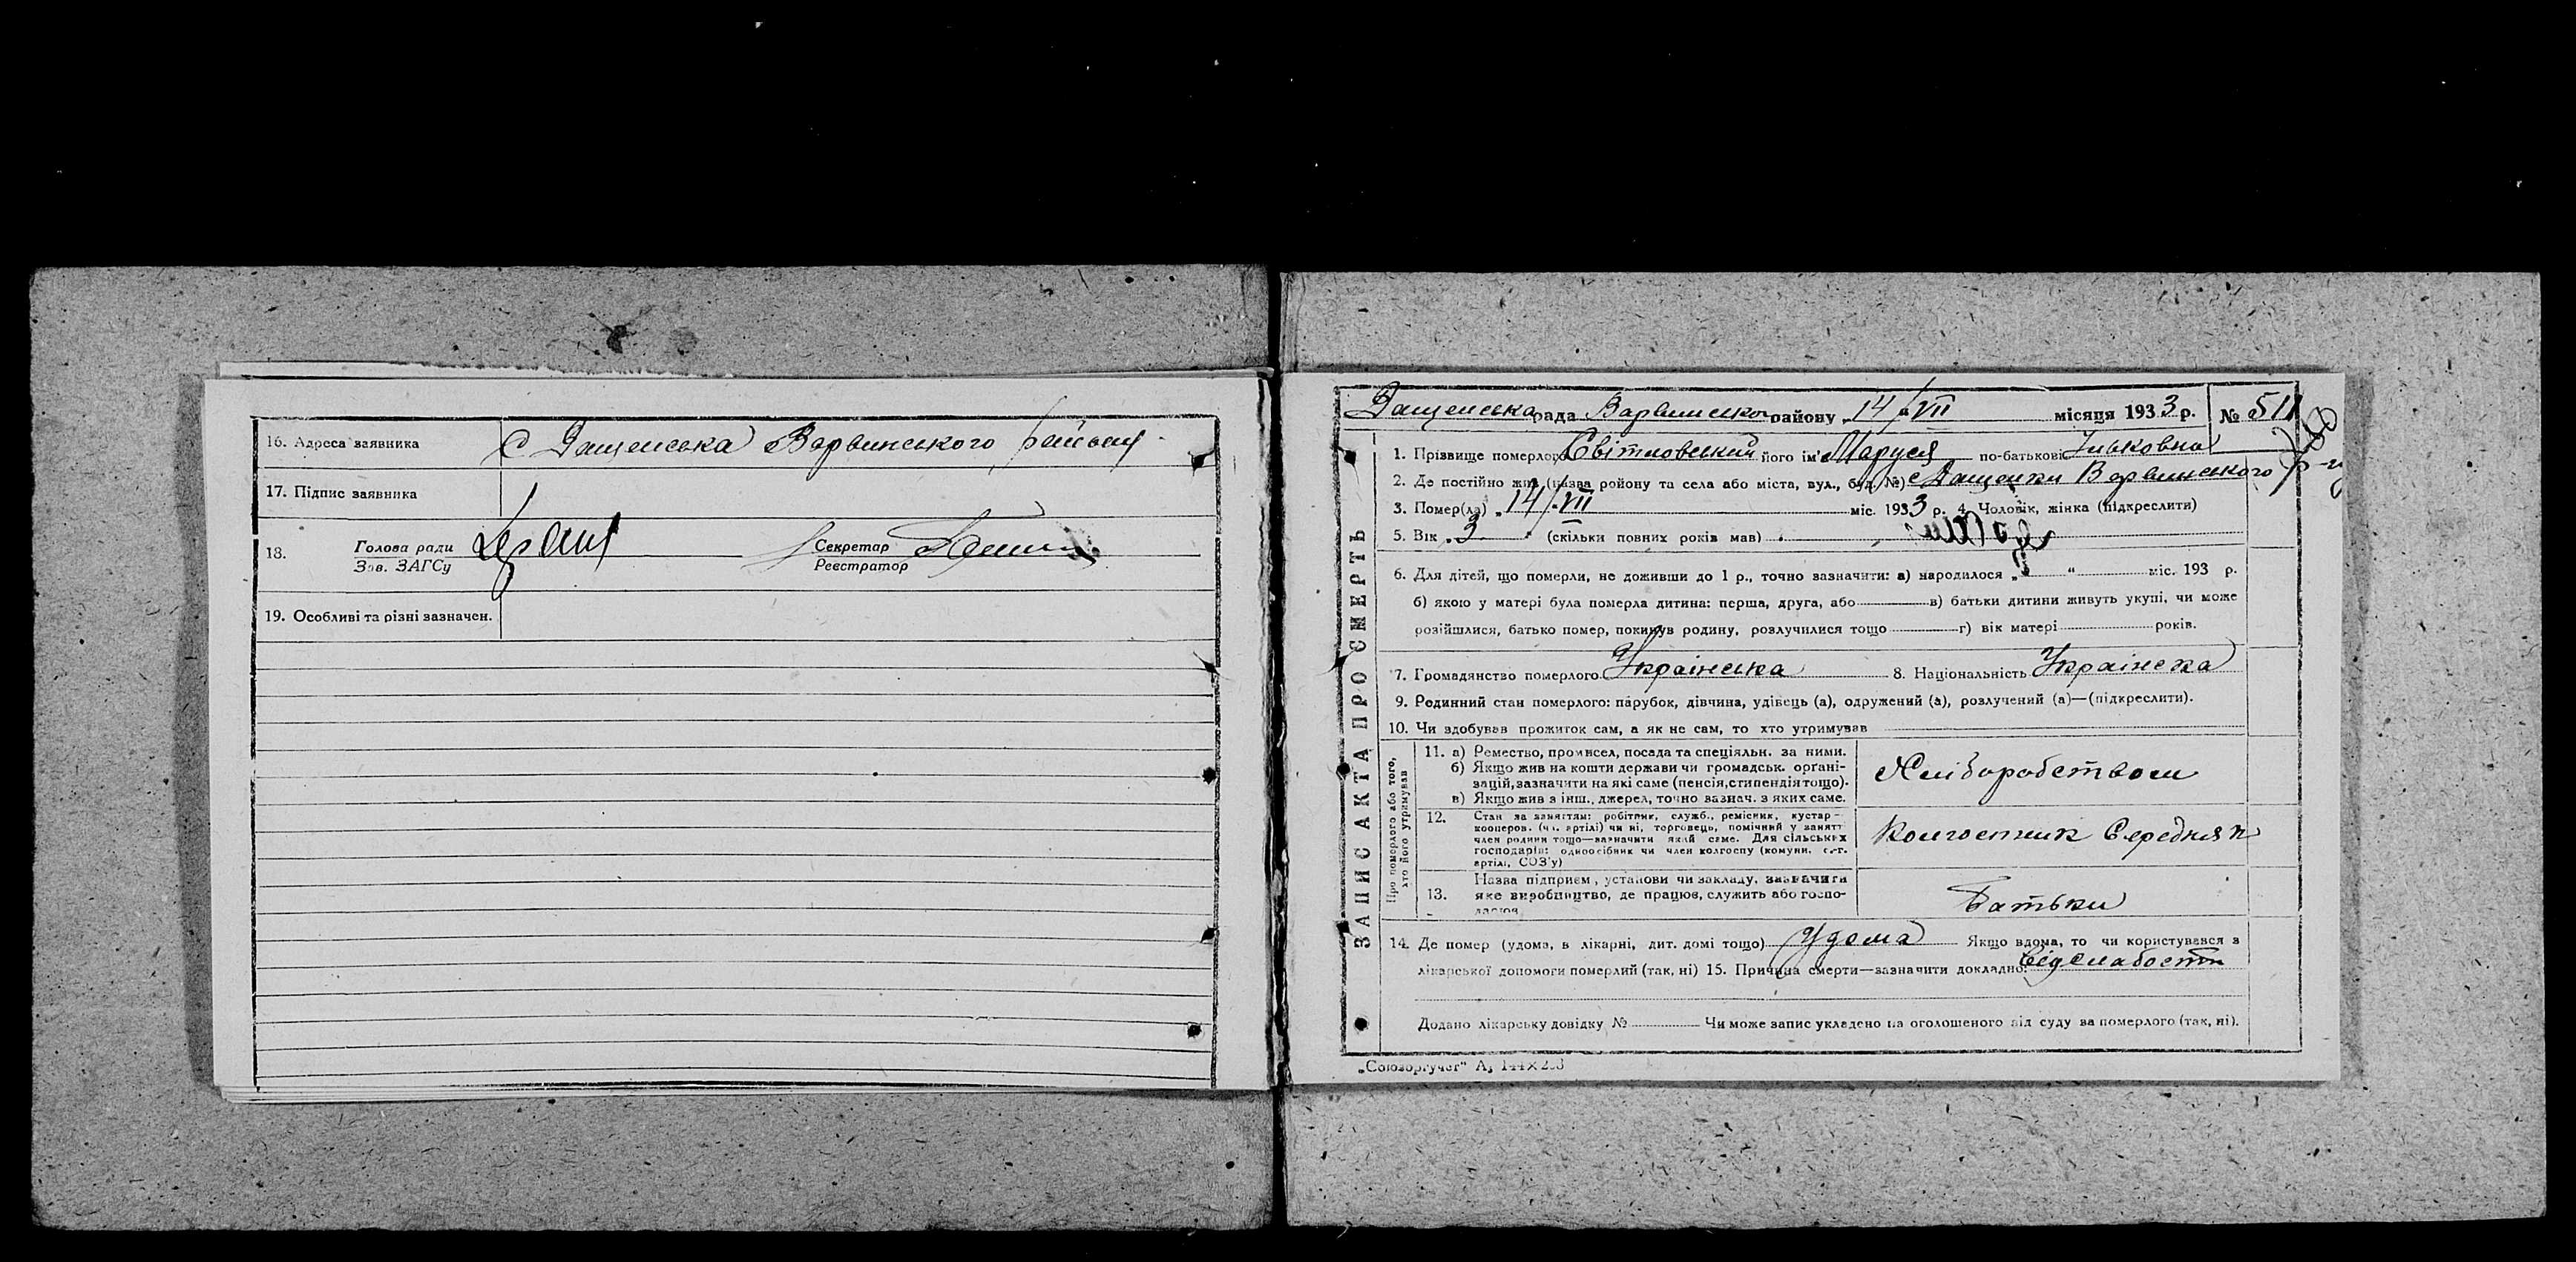 16. Адреса заявника С Дащенська Варвинського району
17. Підпис заявника
18. Голова ради Секретар
Зав. ЗАГСу Реєстратор
19. Особливі та різні зазначен.
Дащенська рада Варвинського району „ 14/VII місяця 1933 р. № 511
ЗАПИС АКТА ПРО СМЕРТЬ
1. Прізвище померлого Світловський його ім'я Маруся по-батькові Ільковна
2. Де постійно жив (назва району та села або міста, вул., буд. №) с Дащенки Варвинського р-у
3. Помер(ла) „ 14/VII міс. 1933 р. 4. Чоловік, жінка (підкреслити)
5. Вік „ 3 “ (скільки повних років мав)
6. Для дітей, що померли, не доживши до 1 р., точно зазначити: а) народилося „ “ міс. 193 р.
б) якою у матері була померла дитина: перша, друга, або в) батьки дитини живуть укупі, чи може
розійшлися, батько помер, покинув родину, розлучилися тощо г) вік матері років.
7. Громадянство померлого Українська 8. Національність Українска
9. Родинний стан померлого: парубок, дівчина, удівець (а), одружений (а), розлучений (а)—(підкреслити).
10. Чи здобував прожиток сам, а як не сам, то хто утримував
Про померлого або того, хто його утримував
11. а) Ремество, промисел, посада та спеціяльн. за ними.
б) Якщо жив на кошти держави чи громадськ. органі-
зацій, зазначити на які саме (пенсія, стипендія тощо).
в) Якщо жив з інш., джерел, точно зазнач. з яких саме.
Хліборобством
12. Стан за заняттям: робітник, служб., ремісник, кустар-
кооперов. (чл. артілі) чи ні, торговець, помічний у занятт
член родини тощо—зазначити який саме. Для сільських
господарів: одноосібник чи член колгоспу (комуни, с.-г.
артілі, СОЗ'у)
Колгостник Середняк
13. Назва підприєм, установи чи закладу, зазначити
яке виробництво, де працює, служить або госпо-
дарює
Батьки
14. Де помер (удома, в лікарні, дит. домі тощо) Удома Якщо вдома, то чи користувався з
лікарської допомоги померлий (так, ні) 15. Причина смерти—зазначити докладно: від слабости
Додано лікарську довідку № Чи може запис укладено на оголошеного від суду за померлого (так, ні).
„Союзоргучет“